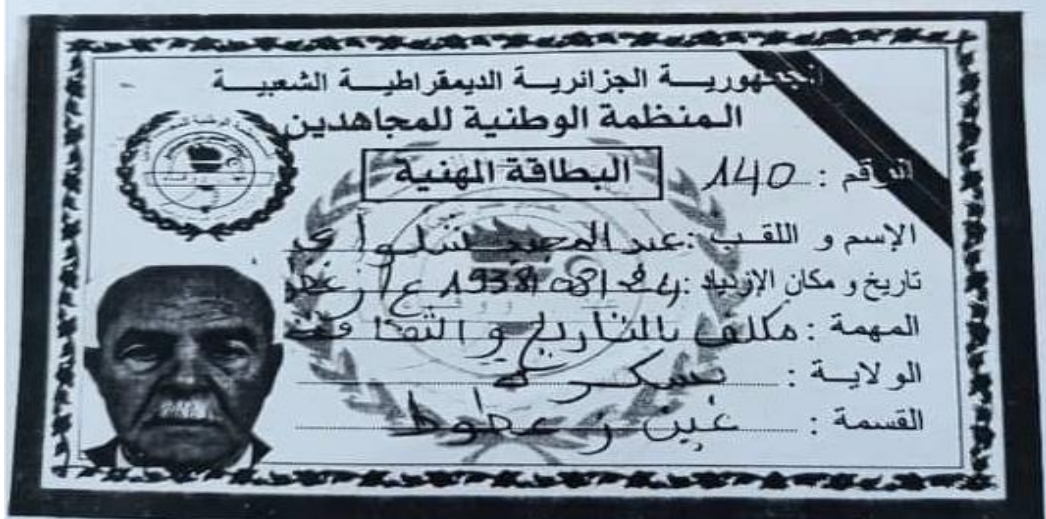 الجمهورية الجزائرية الديمقراطية الشعبية
المنظمة الوطنية للمجاهدين
البطاقة المهنية
الرقم : 140
الإسم و اللقب : عبد المجيد شلواي
تاريخ و مكان الإزدياد : 1938/08/24
المهمة : مكلف بالتاريخ و الثقافة
الولاية : بسكرة
القسمة : عين زعطوط